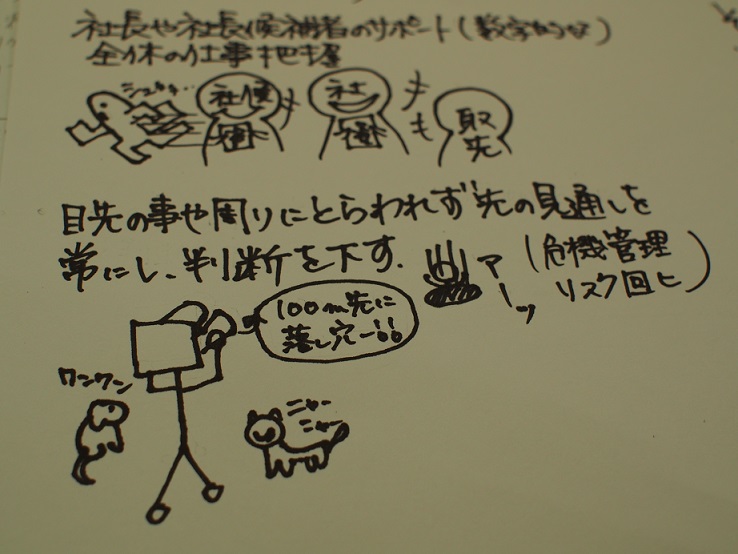 社長や社長候補者のサポート(数字かつな)
全体の仕事把握
シュタタ…
社候
社
も
も
取先
目先の事や周りにとらわれず先の見通しを
常にし、判断を下す.
(危機管理
リスク回ヒ)
アーッ
100m先に
落し穴ー!!
ワンワン
ニャー
ニャー